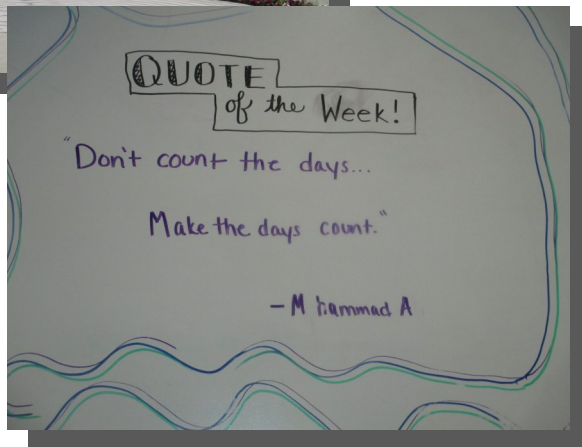 QUOTE
of the Week!
"Don't count the days...
Make the days count."
- M hammad A